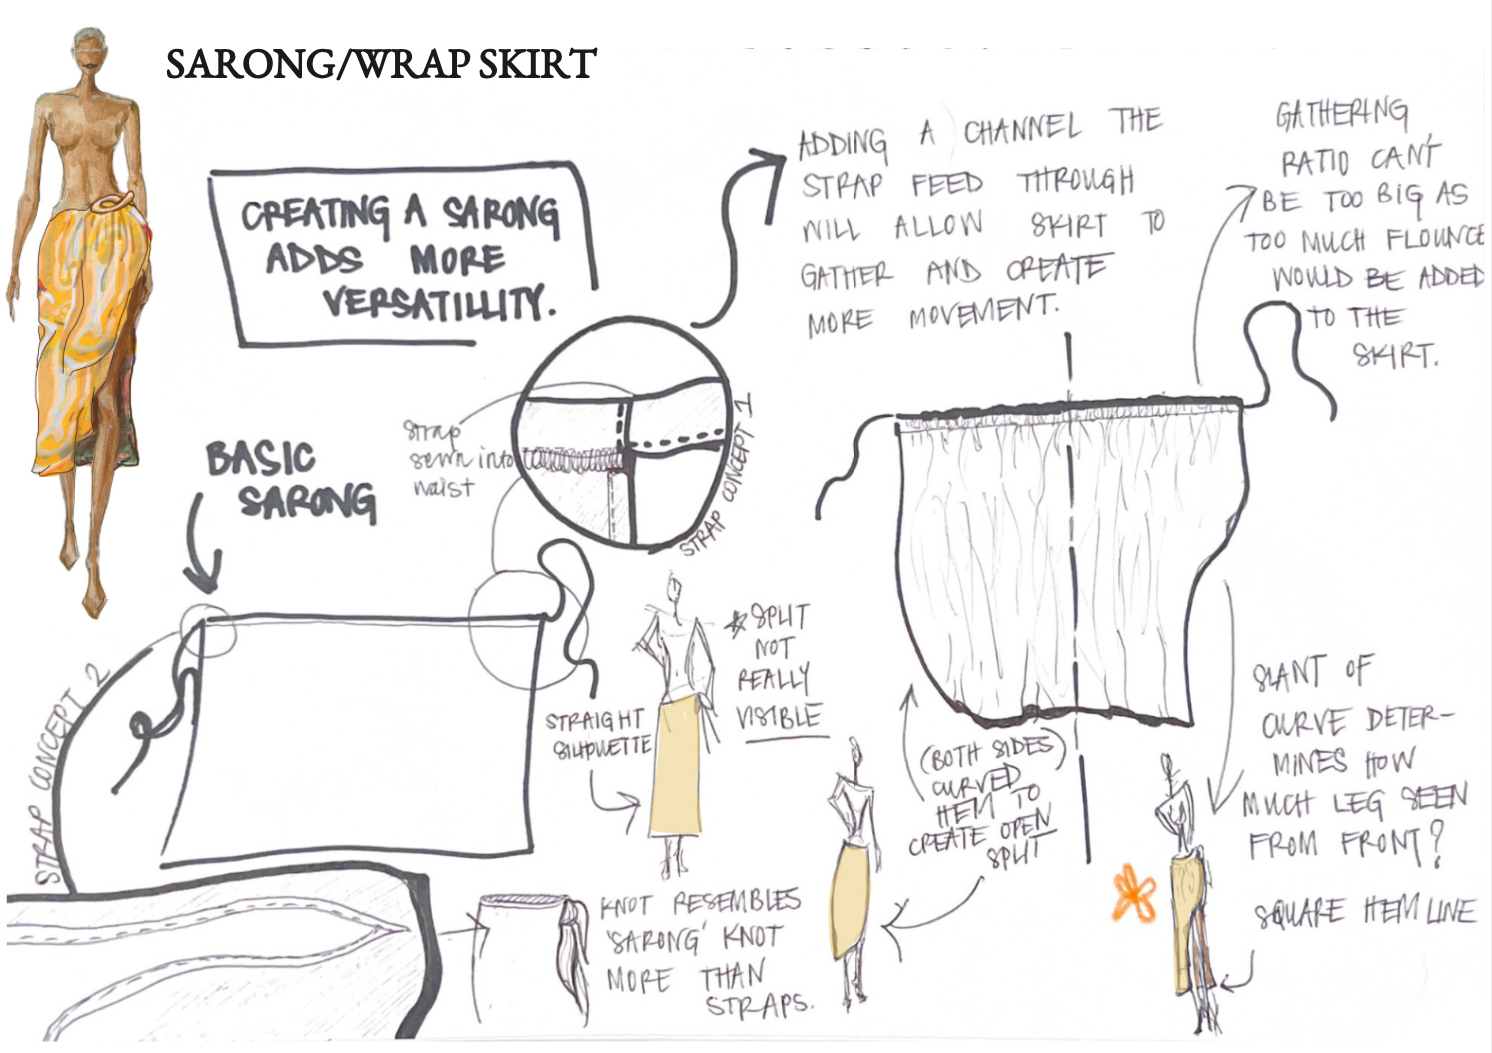 SARONG/WRAP SKIRT
CREATING A SARONG
ADDS MORE
VERSATILLITY.
ADDING A CHANNEL THE
STRAP FEED THROUGH
WILL ALLOW SKIRT TO
GATHER AND CREATE
MORE MOVEMENT.
GATHERING
RATIO CAN'T
BE TOO BIG AS
TOO MUCH FLOUNCE
WOULD BE ADDED
TO THE
SKIRT.
Strap
sewn into
waist
STRAP CONCEPT 1
BASIC
SARONG
STRAP CONCEPT 2
STRAIGHT
SILHUETTE
*SPLIT
NOT
REALLY
VISIBLE
(BOTH SIDES)
CURVED
HEM TO
CREATE OPEN
SPLIT
SLANT OF
CURVE DETER-
MINES HOW
MUCH LEG SEEN
FROM FRONT?
SQUARE HEMLINE
KNOT RESEMBLES
'SARONG' KNOT
MORE THAN
STRAPS.